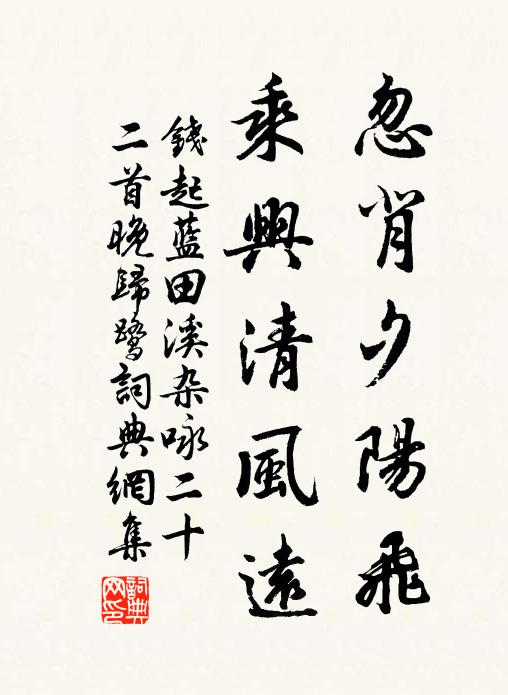 忽背夕陽飛
乘興清風遠
錢起藍田溪杂咏二十
二首晚歸鷺詞典網集
詞典